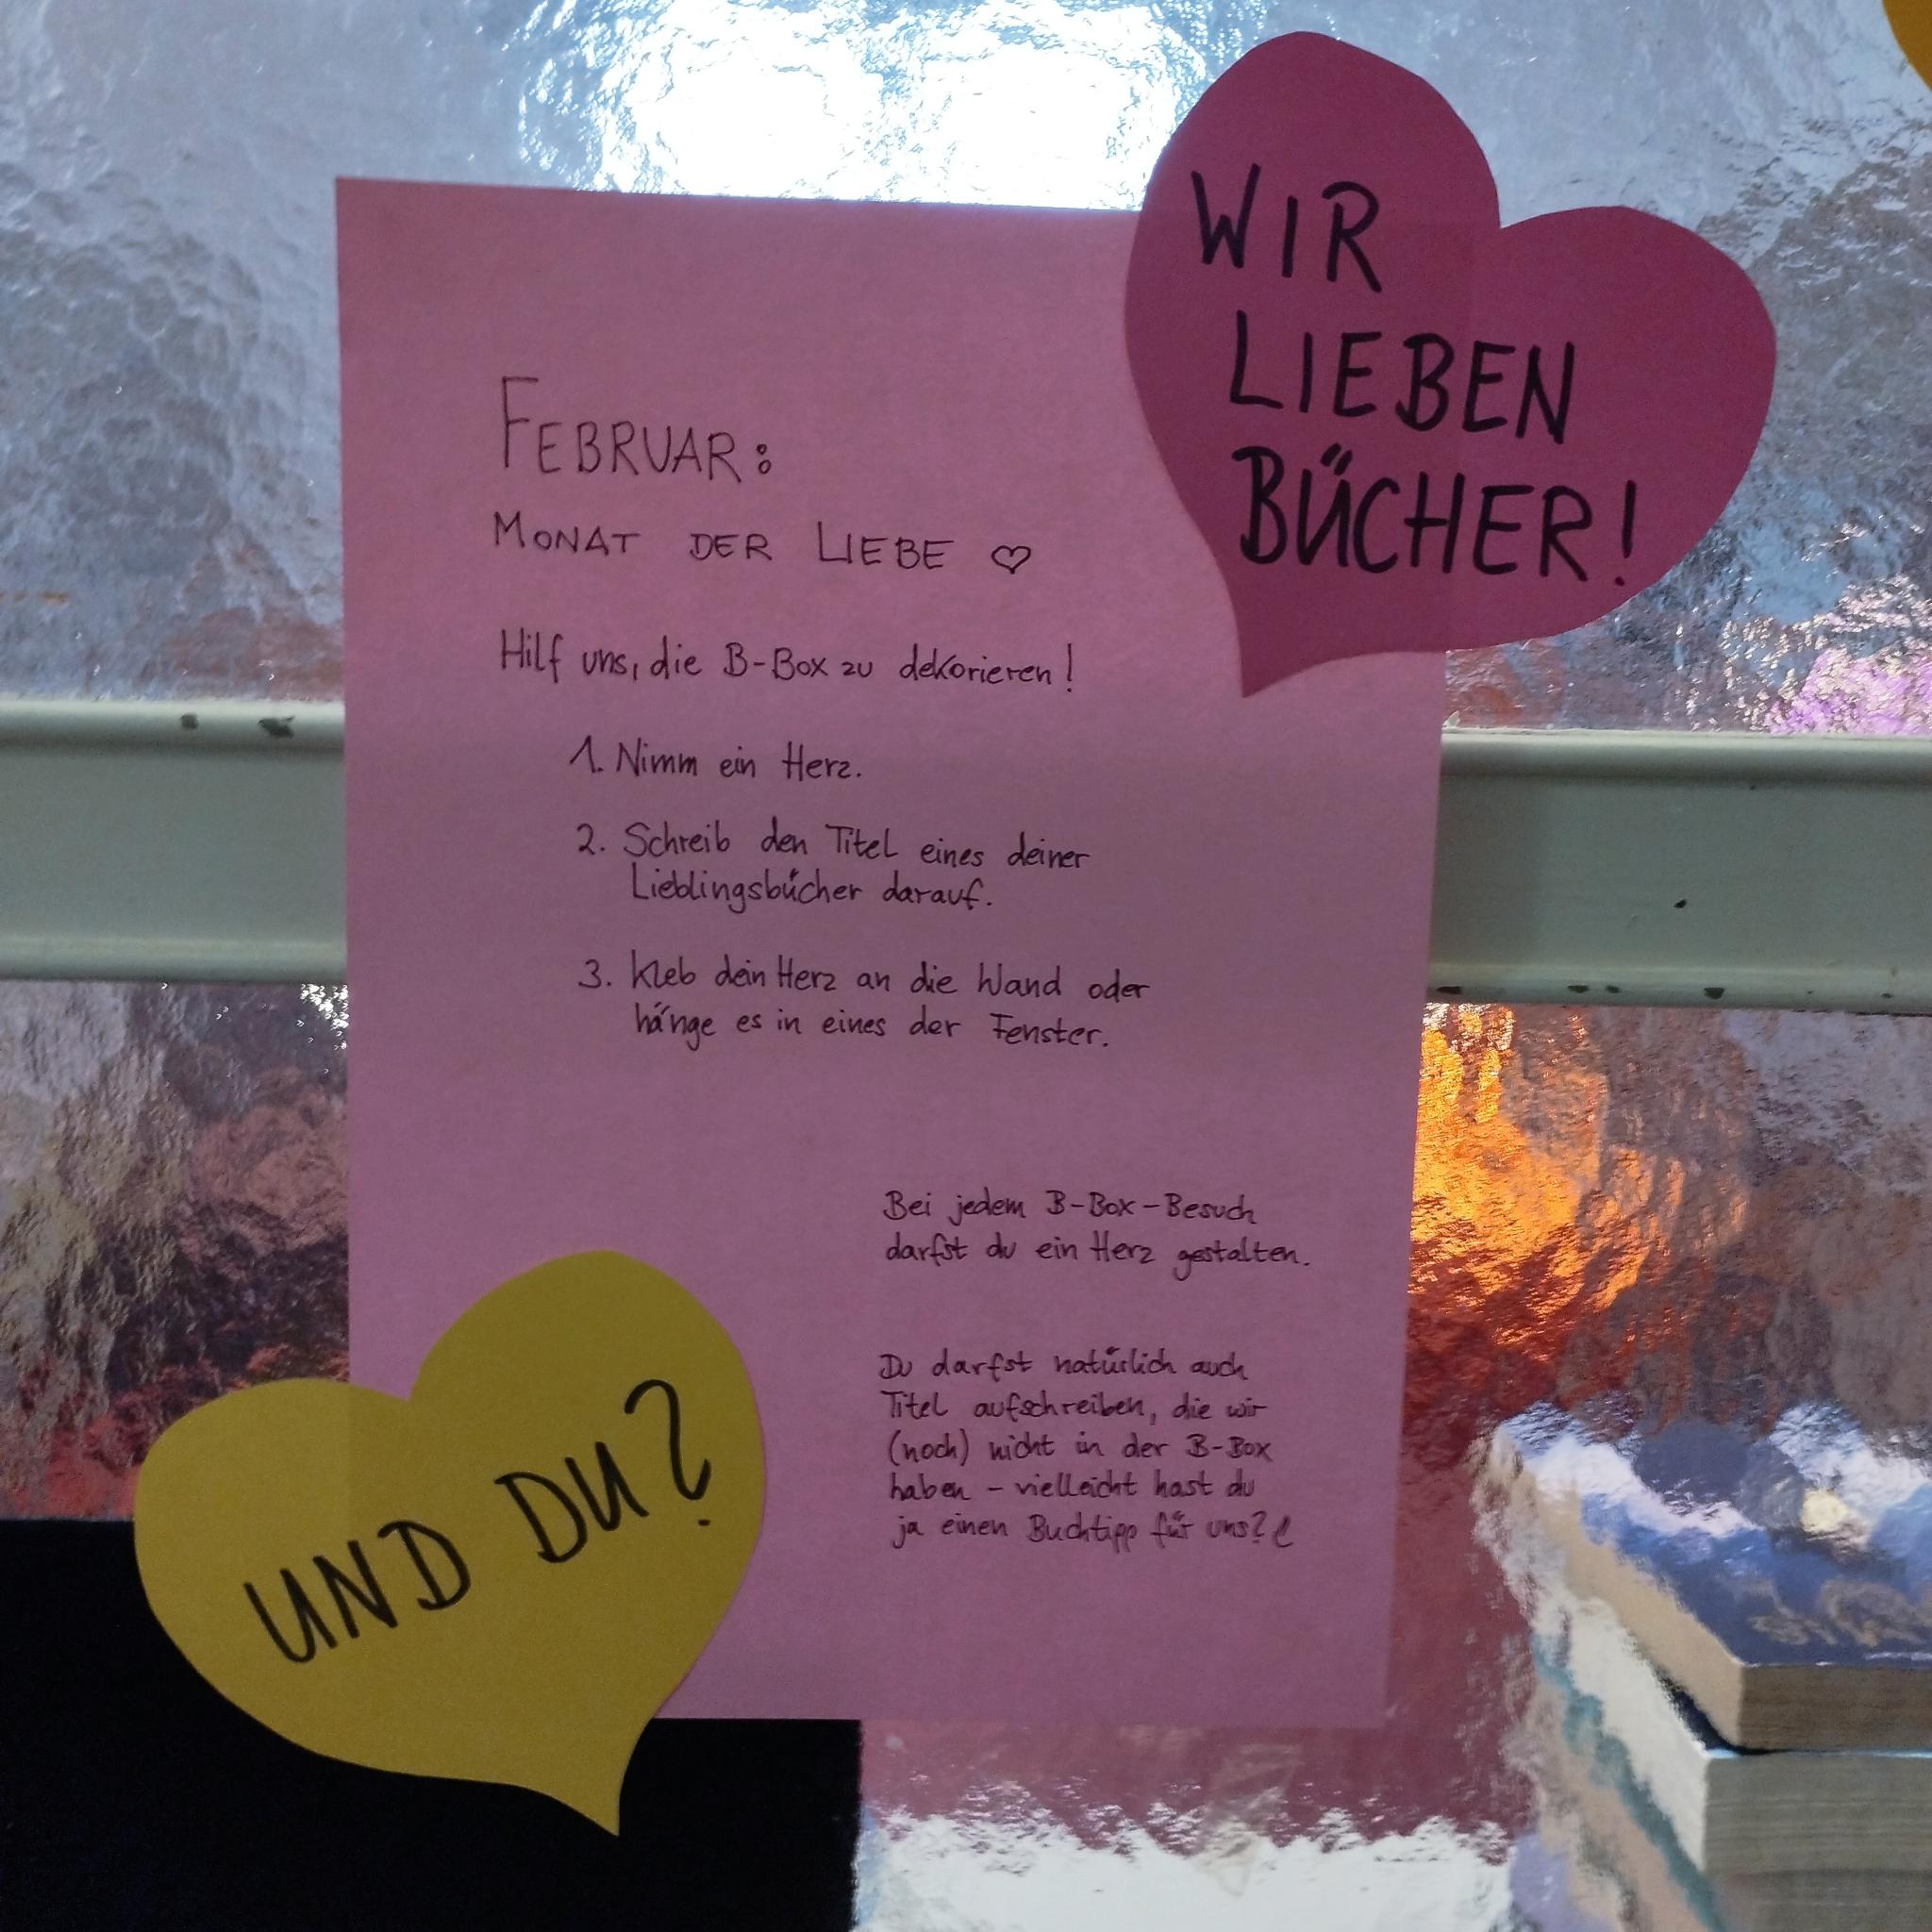 WIR
LIEBEN
BÜCHER!
FEBRUAR:
MONAT DER LIEBE ♡
Hilf uns, die B-Box zu dekorieren!
1. Nimm ein Herz.
2. Schreib den Titel eines deiner
Lieblingsbücher darauf.
3. Kleb dein Herz an die Wand oder
hänge es in eines der Fenster.
Bei jedem B-Box-Besuch
darfst du ein Herz gestalten.
Du darfst natürlich auch
Titel aufschreiben, die wir
(noch) nicht in der B-Box
haben – vielleicht hast du
ja einen Buchtipp für uns?
UND DU?